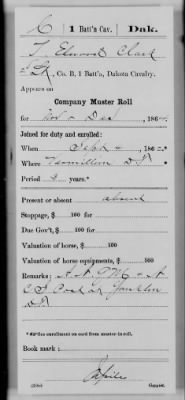 C 1 Batt'n Cav. Dak.
T. Elwood Clark
, Co. B, 1 Batt'n, Dakota Cavalry.
Appears on
Company Master Roll
for Nov & Dec , 186
Joined for duty and enrolled:
When Sept , 186
Where Vermillion D.T.
Period 3 years.*
Present or absent absent
Stoppage, $ 100 for
Due Gov't, $ 100 for
Valuation of horse, $ 100
Valuation of horse equipments, $ 100
Remarks: A. A. Q. M. & A
C. S. Post at Yankton
D.T.
* See enrollment on card from muster-in roll.
Book mark:
Copyist.